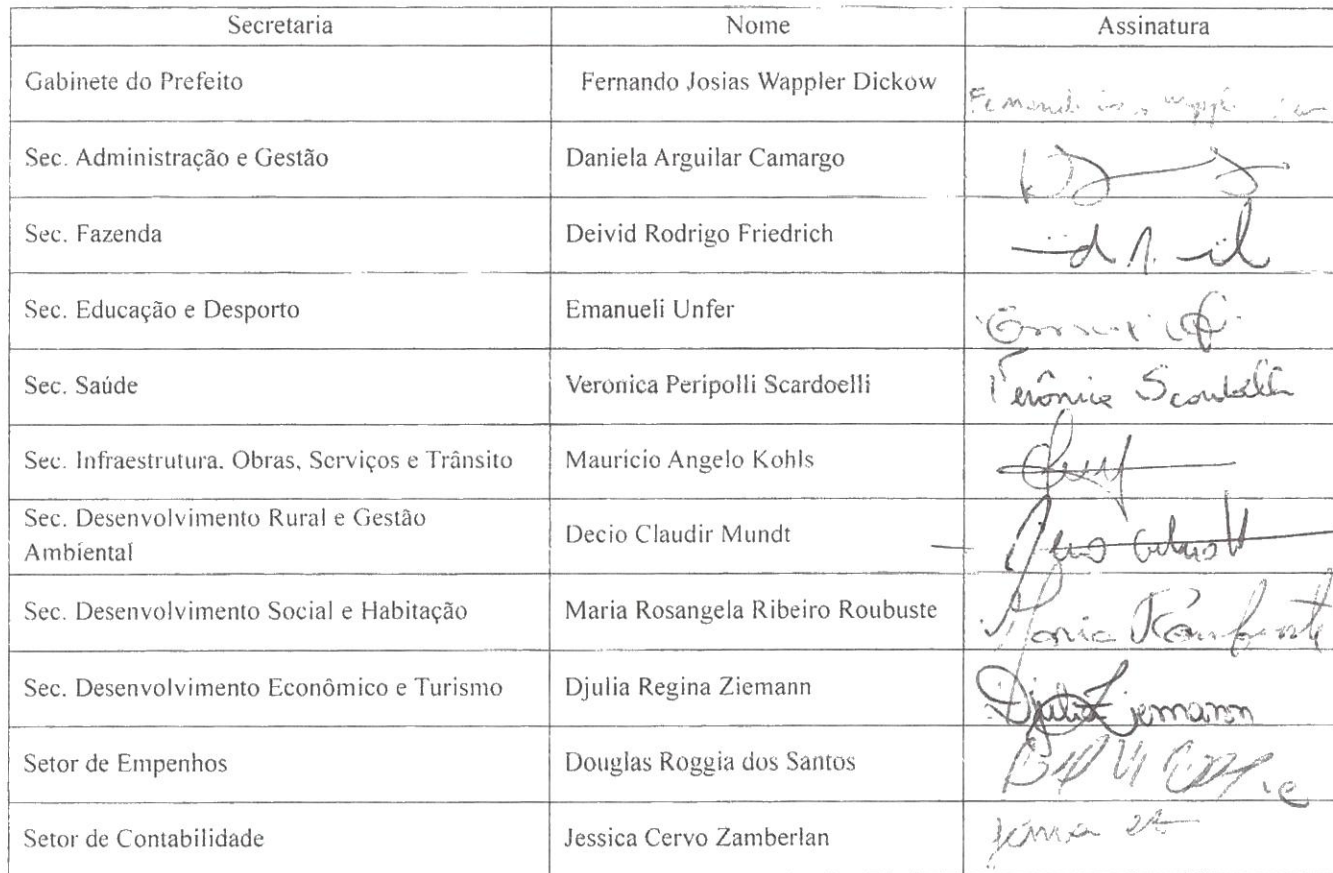 Secretaria Nome Assinatura
Gabinete do Prefeito Fernando Josias Wappler Dickow
Sec. Administração e Gestão Daniela Arguilar Camargo
Sec. Fazenda Deivid Rodrigo Friedrich
Sec. Educação e Desporto Emanueli Unfer
Sec. Saúde Veronica Peripolli Scardoelli Verônica Scardoelli
Sec. Infraestrutura. Obras, Serviços e Trânsito Mauricio Angelo Kohls
Sec. Desenvolvimento Rural e Gestão
Ambiental Decio Claudir Mundt
Sec. Desenvolvimento Social e Habitação Maria Rosangela Ribeiro Roubuste Maria Roubuste
Sec. Desenvolvimento Econômico e Turismo Djulia Regina Ziemann Djulia Ziemann
Setor de Empenhos Douglas Roggia dos Santos
Setor de Contabilidade Jessica Cervo Zamberlan